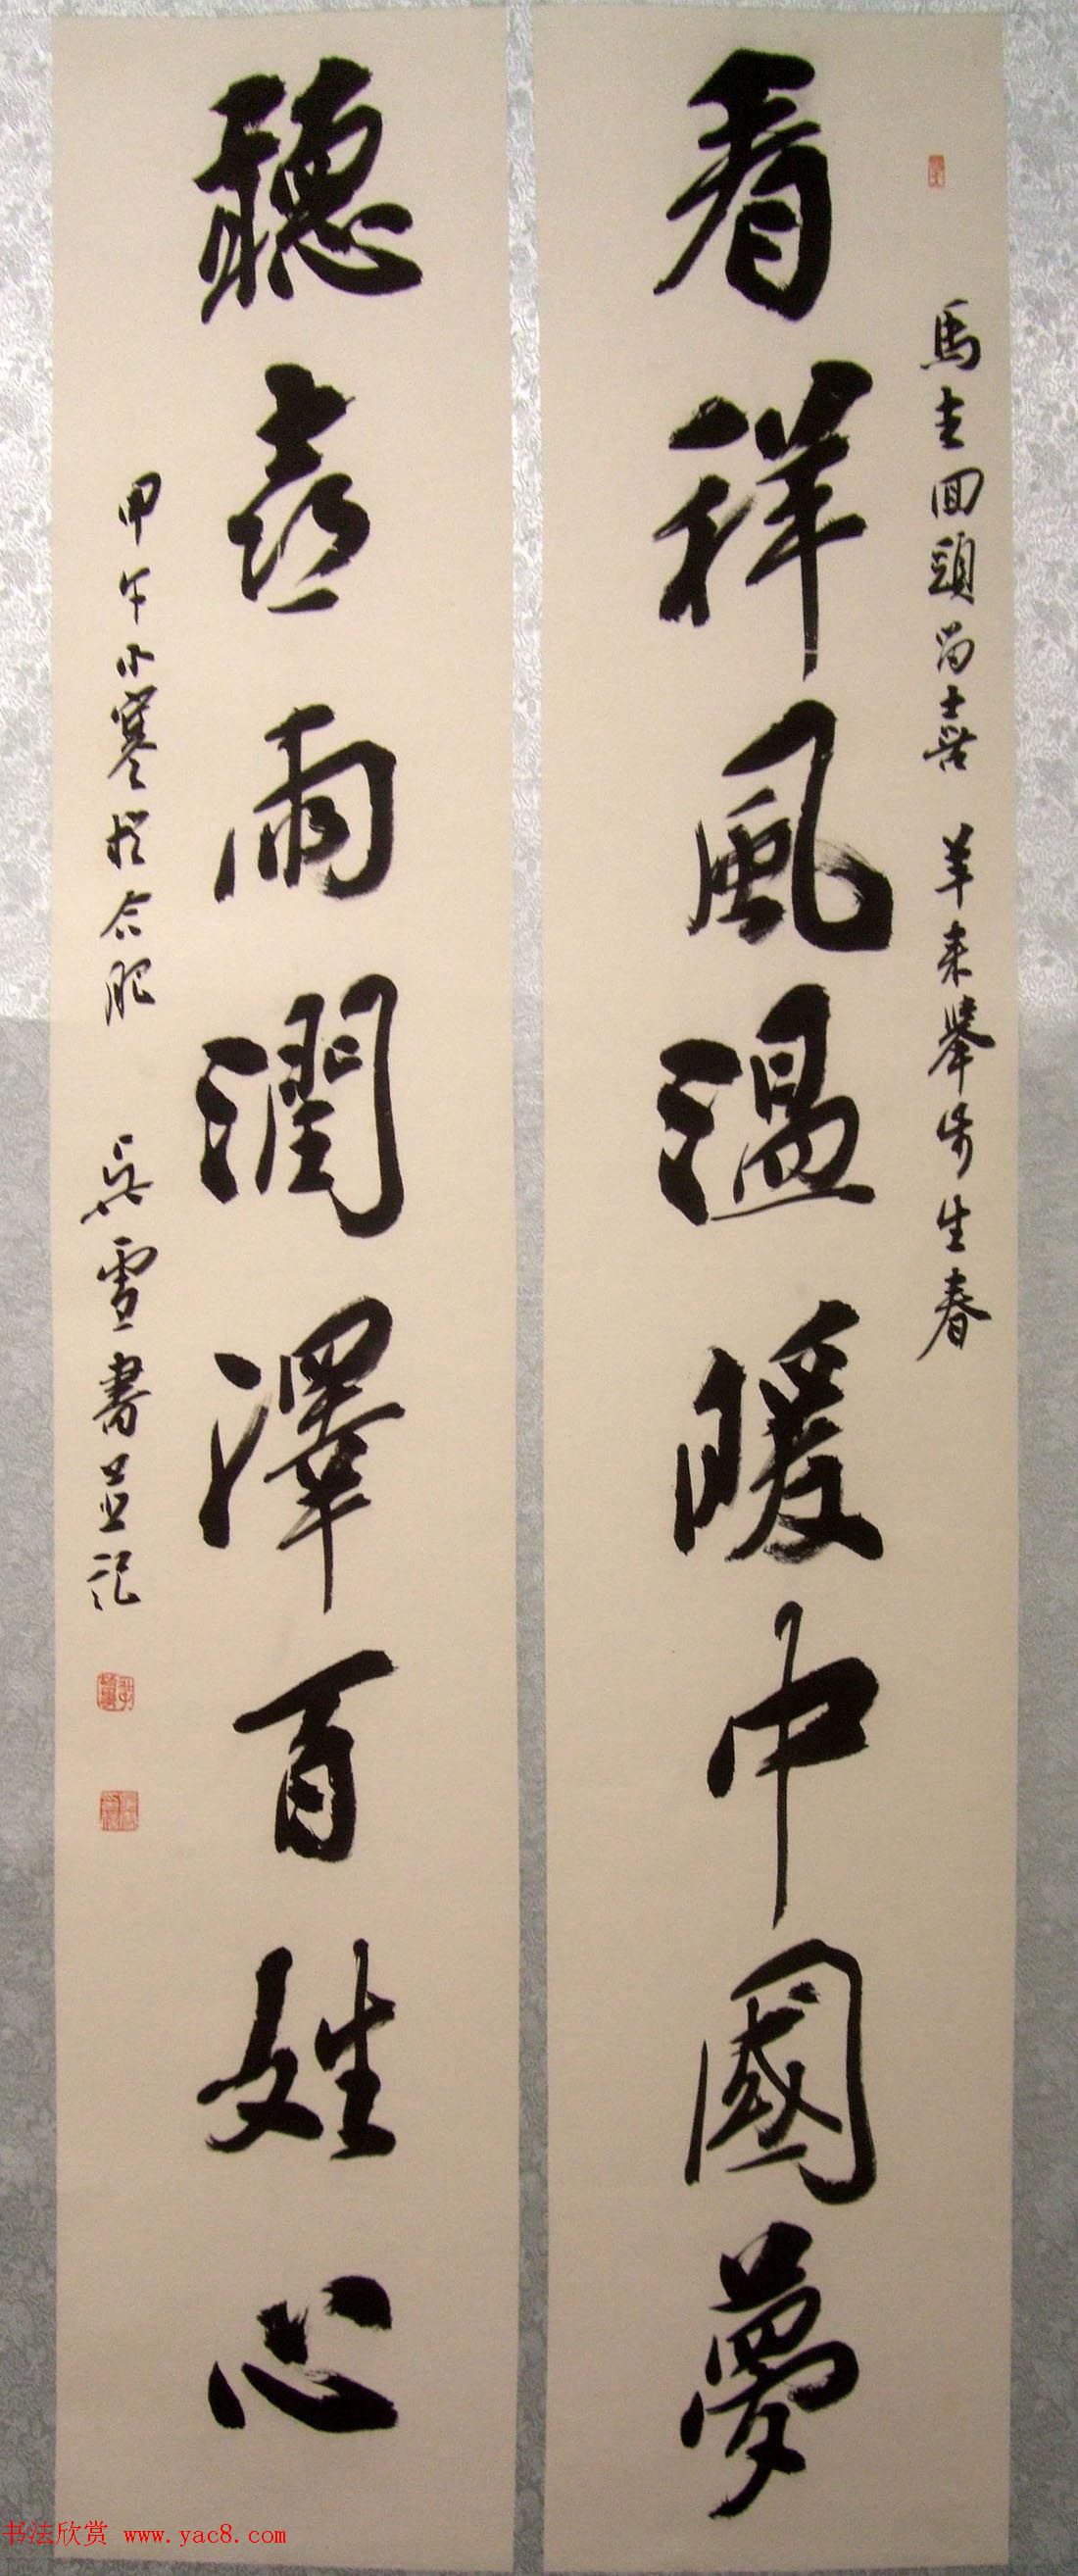 馬走回頭尚喜 羊来舉步生春
看祥風溫暖中國夢
聽喜雨潤澤百姓心
甲午小寒於合肥 吳雪書並記
书法欣赏 www.yac8.com